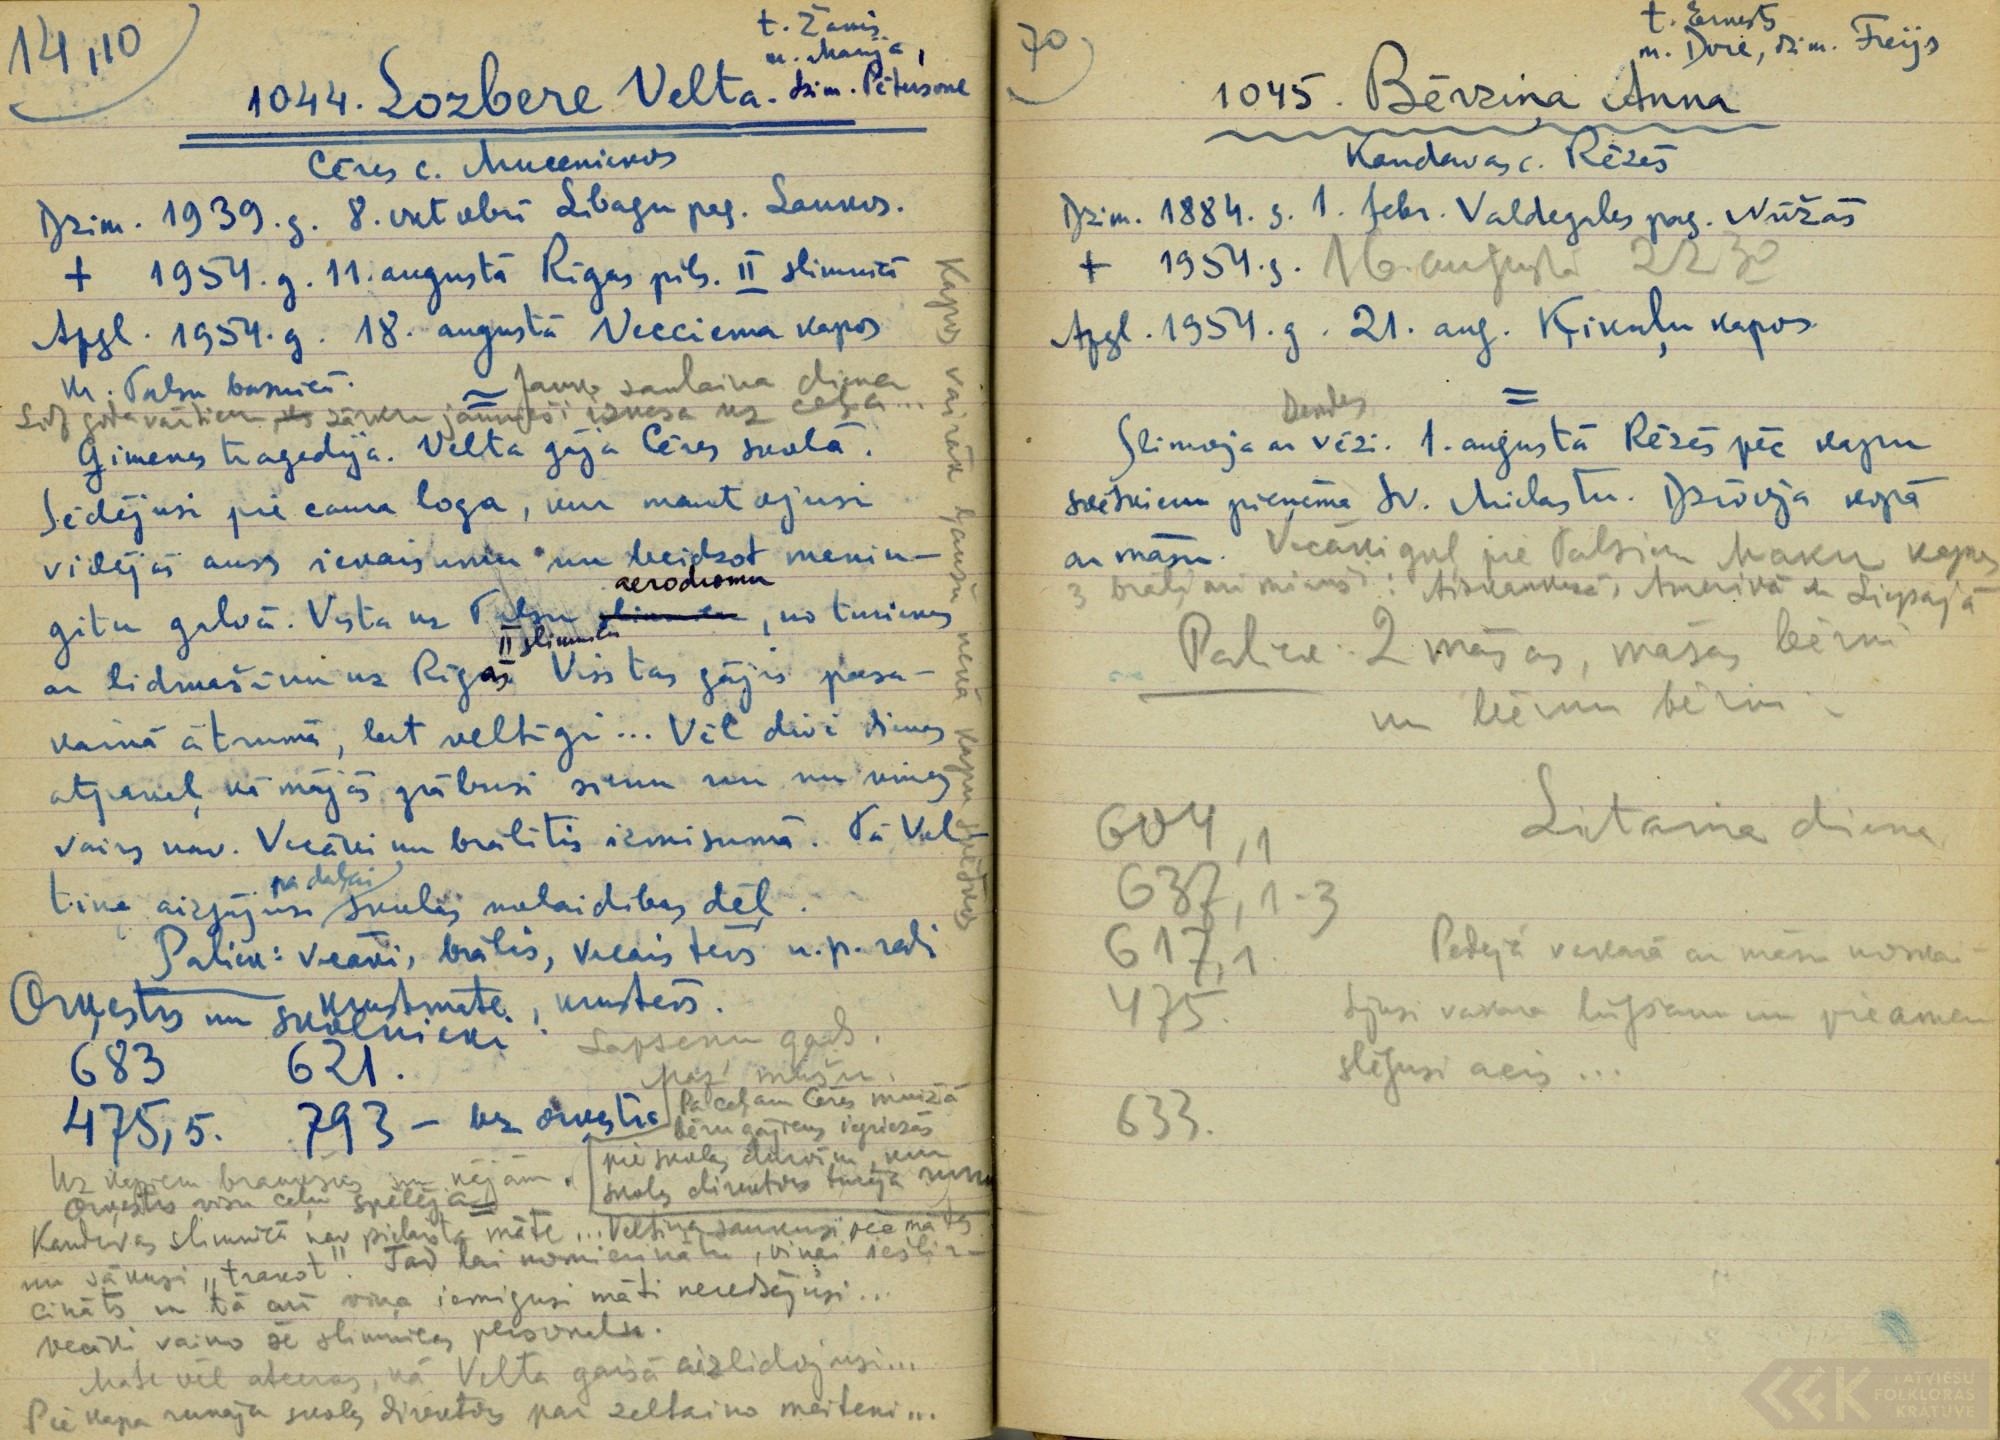 14,10
t. Žanis
m. Marija,
dzim. Pētersone
1044. Lozbere Velta.
Cēres c. Mucenienos
Dzim. 1939. g. 8. oktobrī Lībagu pag. Laukos.
+ 1954. g. 11. augustā Rīgas pils. II slimnīcā
Apgl. 1954. g. 18. augustā Vecciema kapos
kr. Talsu baznīcā.
Jauka saulaina diena
Līdz goda vārtiem zārku jaunieši iznesa uz ceļa...
Ģimenes traģēdija. Velta gāja Cēres skolā.
Sēdējusi pie caura loga, kur mantojusi
vidējās auss iekaisumu un beidzot menin-
gītu galvā. Vesta uz Talsu aerodromu, no turienes
ar lidmašīnu uz Rīgas II slimnīcu Viss tas gājis pasa-
kainā ātrumā, bet veltīgi... Vēl divi dienas
atpakaļ kā mājās grābusi sienu un nu viņas
vairs nav. Vecāki un brālītis izmisumā. Tā Vel-
tiņa aizgājusi pa daļai skolas nolaidības dēļ.
Paliek: vecāki, brālis, vecais tēvs u.p. radi
krustmāte, krusttēvs.
Orķestris un skolnieki.
683 621.
475,5. 793 – uz orķestra
Lapsenu gads.
maz mušu.
Pa ceļam Cēres muižā
bēru gājiens iegriezās
pie skolas durvīm, kur
skolas direktors turēja runu
Uz kapiem braukšus un kājām.
Orķestris visu ceļu spēlēja
Kandavas slimnīcā nav pielaista māte... Veltiņa saukusi pēc mātes
un sākusi „trakot". Tad lai nomierinātu, viņai iešļir-
cināts un tā arī viņa iemigusi māti neredzējusi...
Vecāki vaino šē slimnīcas personālu.
Māte vēl atceras, kā Velta gaisā aizlidojusi...
Pie kapa runāja skolas direktors par zeltaino meiteni...
Kapos vairāk ļaužu nekā kapu svētkos
70
t. Ernests
m. Dore, dzim. Freijs
1045. Bērziņa Anna
Kandavas c. Rēzēs
Dzim. 1884. g. 1. febr. Valdegales pag. Nūžās
+ 1954. g. 16. augustā 22 30
Apgl. 1954. g. 21. aug. Ķikuļu kapos
Slimoja ar vēzi. 1. augustā Rēzēs pēc kapu
svētkiem pieņēma Sv. Mielastu. Dzīvoja kopā
ar māsu. Vecāki guļ pie Talsiem Maku kapos
3 brāļi ari miruši: Amerikā Liepajā
Paliek: 2 māsas, māsas bērni
un bērnu bērni
604,1
Lietaina diena
637,1-3
617,1.
Pēdējā vakarā ar māsu noskai-
475.
tījusi vakara lūgšanu un pie amen
slēgusi acis...
633.
LATVIEŠU
FOLKLORAS
KRĀTUVE